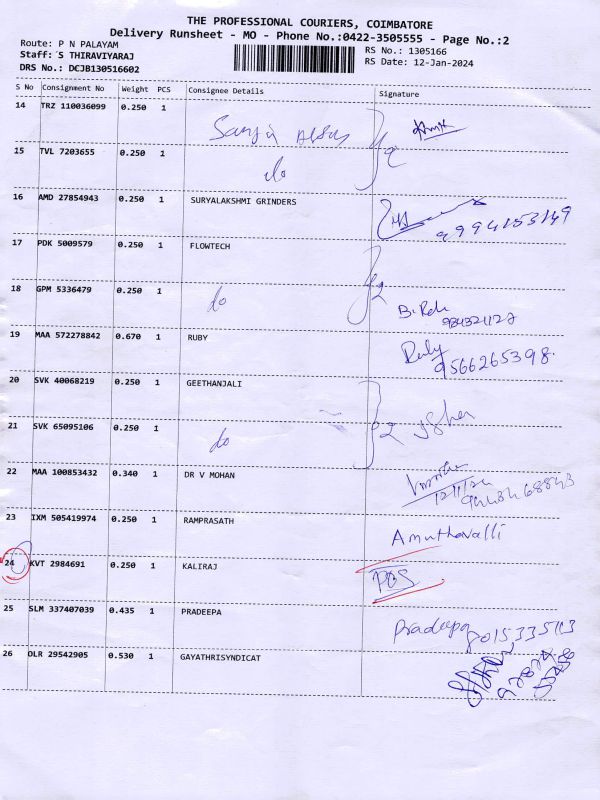 THE PROFESSIONAL COURIERS, COIMBATORE
Delivery Runsheet - MO - Phone No.:0422-3505555 - Page No.:2
Route: P N PALAYAM
RS No.: 1305166
Staff: S THIRAVIYARAJ
RS Date: 12-Jan-2024
DRS No.: DCJB130516602
S No Consignment No Weight PCS Consignee Details Signature
14 TRZ 110036099 0.250 1
15 TVL 7203655 0.250 1 do 2
16 AMD 27854943 0.250 1 SURYALAKSHMI GRINDERS
9994153149
17 PDK 5009579 0.250 1 FLOWTECH
18 GPM 5336479 0.250 1 do 2
19 MAA 572278842 0.670 1 RUBY Ruby
9566265398
20 SVK 40068219 0.250 1 GEETHANJALI
21 SVK 65095106 0.250 1 do 2
22 MAA 100853432 0.340 1 DR V MOHAN
12/1/24
23 IXM 505419974 0.250 1 RAMPRASATH Amuthavalli
24 KVT 2984691 0.250 1 KALIRAJ
25 SLM 337407039 0.435 1 PRADEEPA Pradeepa 8015335113
26 OLR 29542905 0.530 1 GAYATHRISYNDICAT